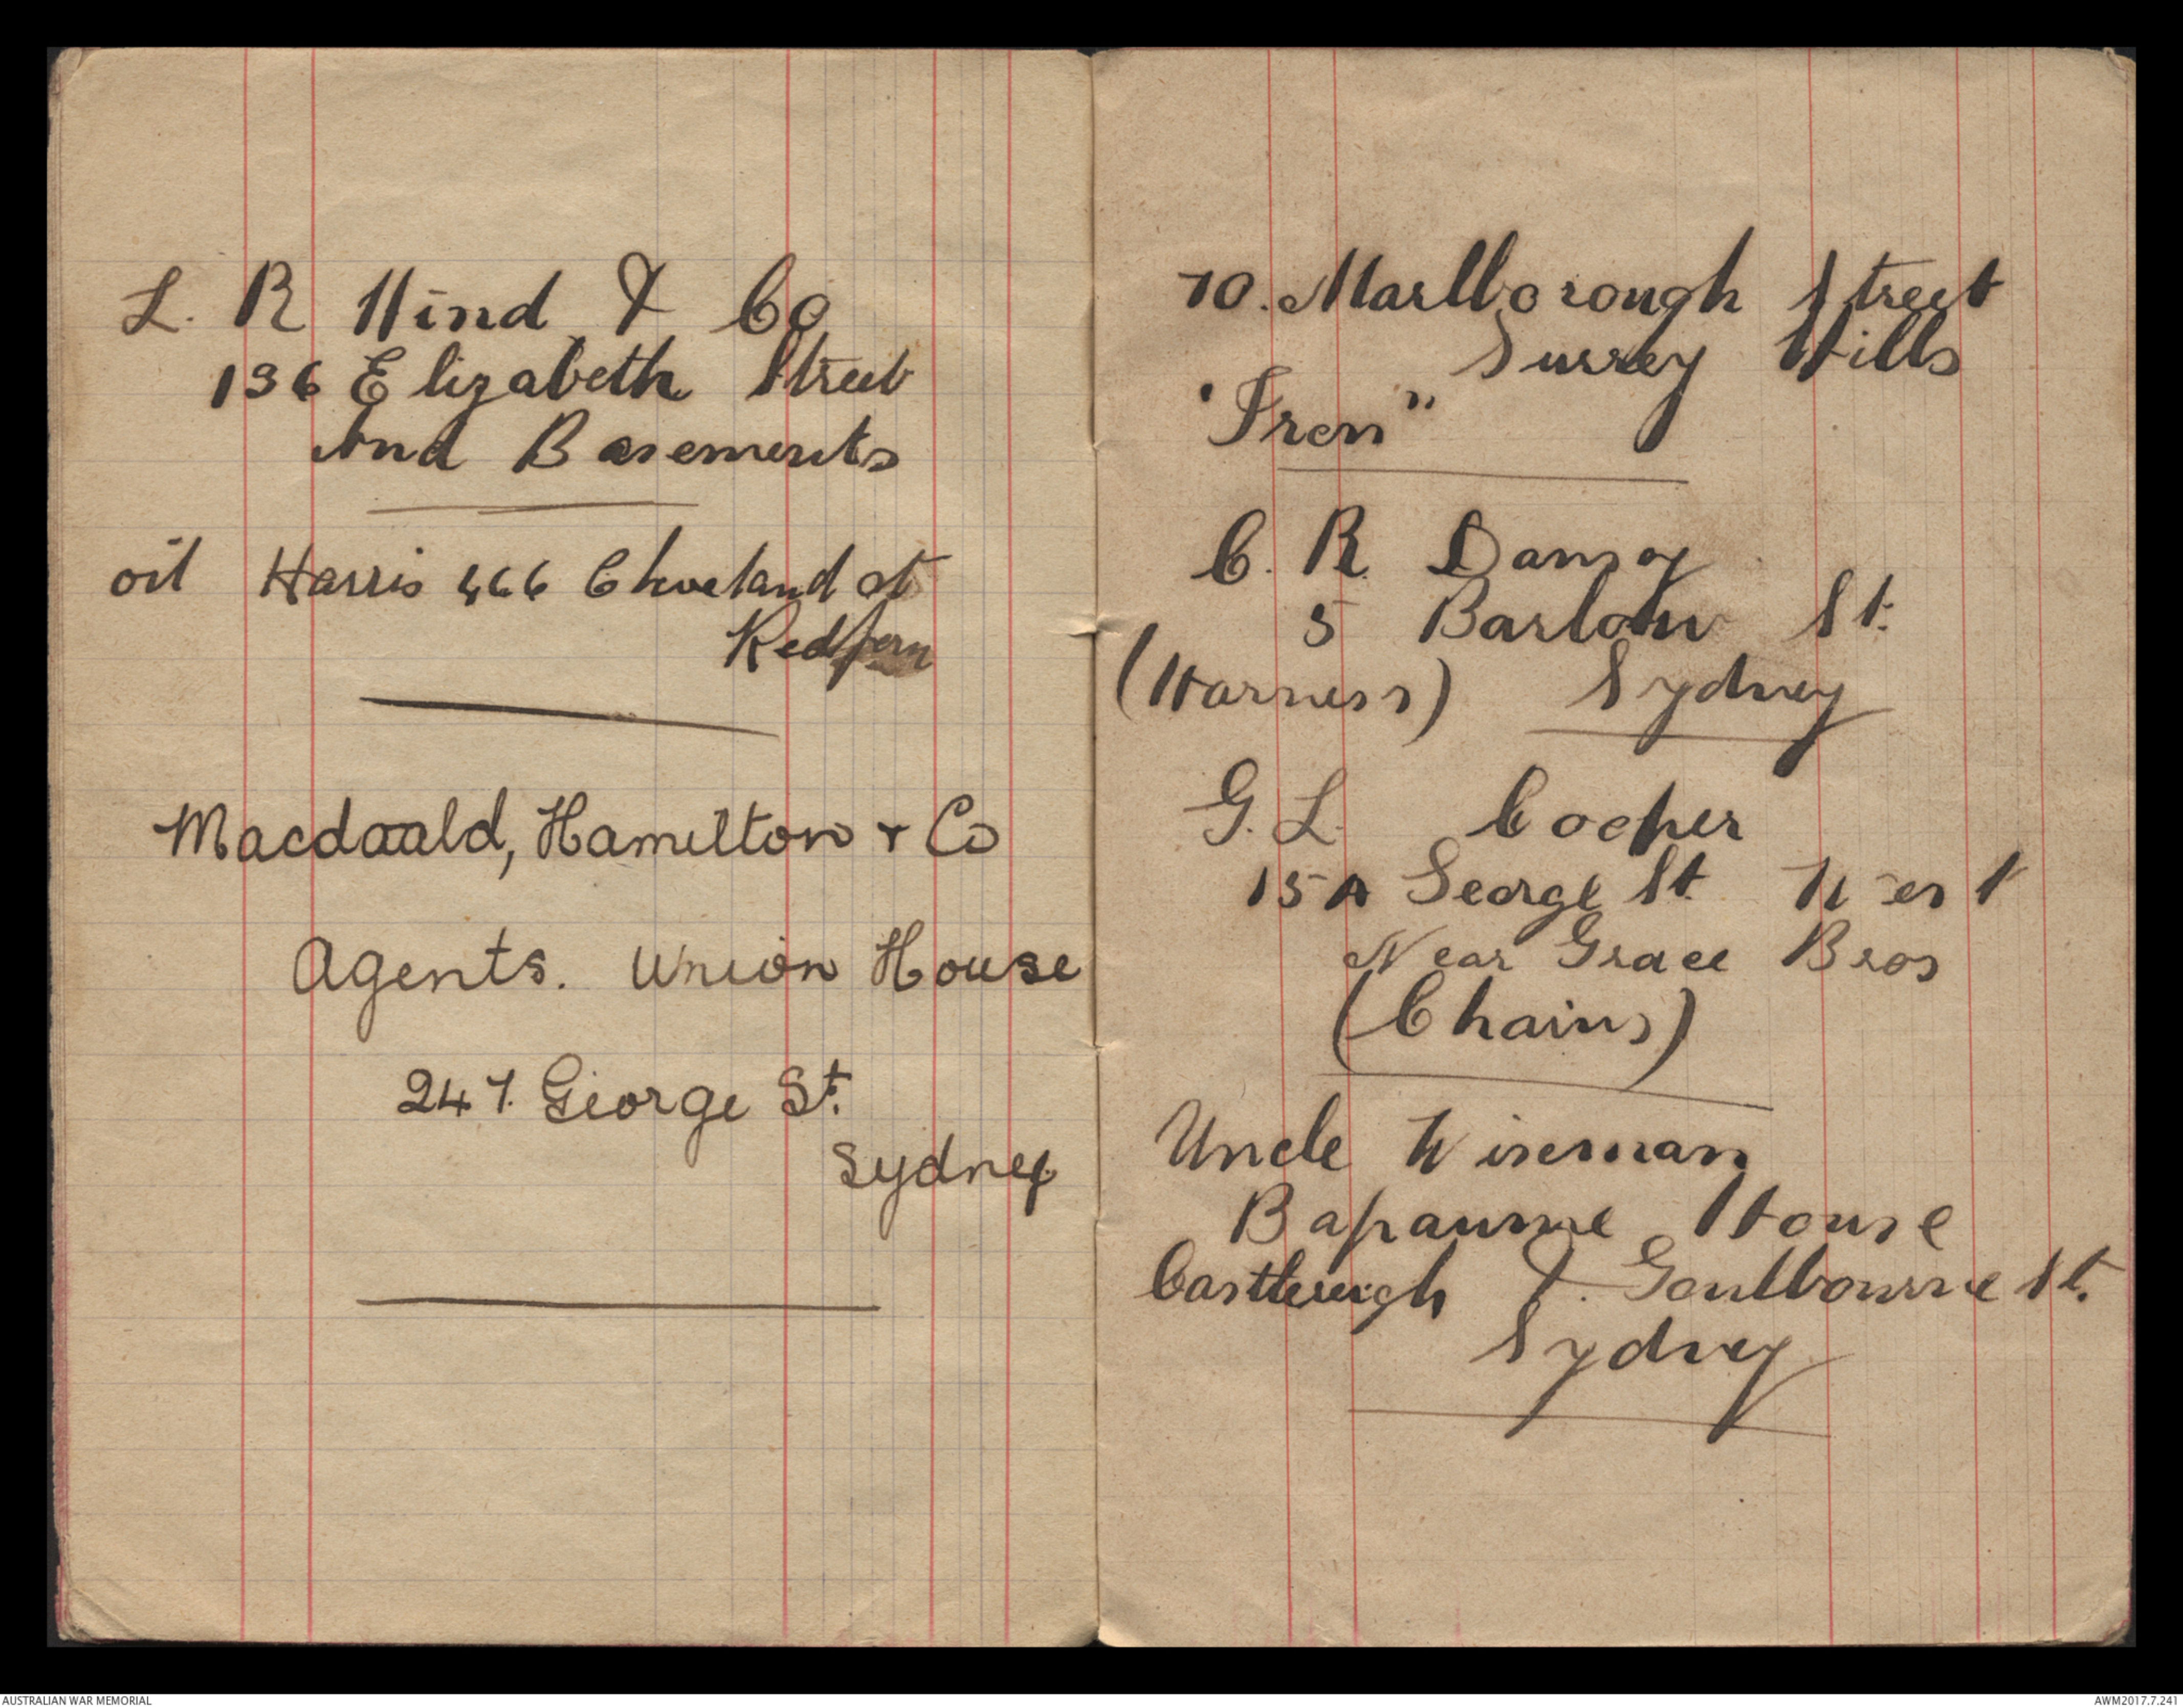 L. R Hind & Co
136 Elizabeth Street
And Basements
oil Harris 466 Cleveland st
Redfern
Macdaald, Hamilton & Co
Agents. Union House
247. George St.
Sydney
70. Marlborough Street
Surrey Hills
"Iron"
C. R. Damsy
5 Barlow St.
(Harness) Sydney
G. L. Cooper
15A George St. West
Near Grace Bros
(Chains)
Uncle Wiseman
Bapaume House
Castlereigh & Goulbourne St.
Sydney
AUSTRALIAN WAR MEMORIAL
AWM2017.7.241